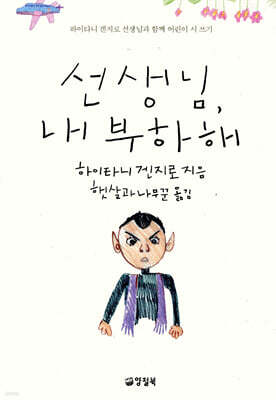 하이타니 겐지로 선생님과 함께 어린이 시 쓰기
선생님,
내 부하 해
하이타니 겐지로 지음
햇살과나무꾼 옮김
양철북